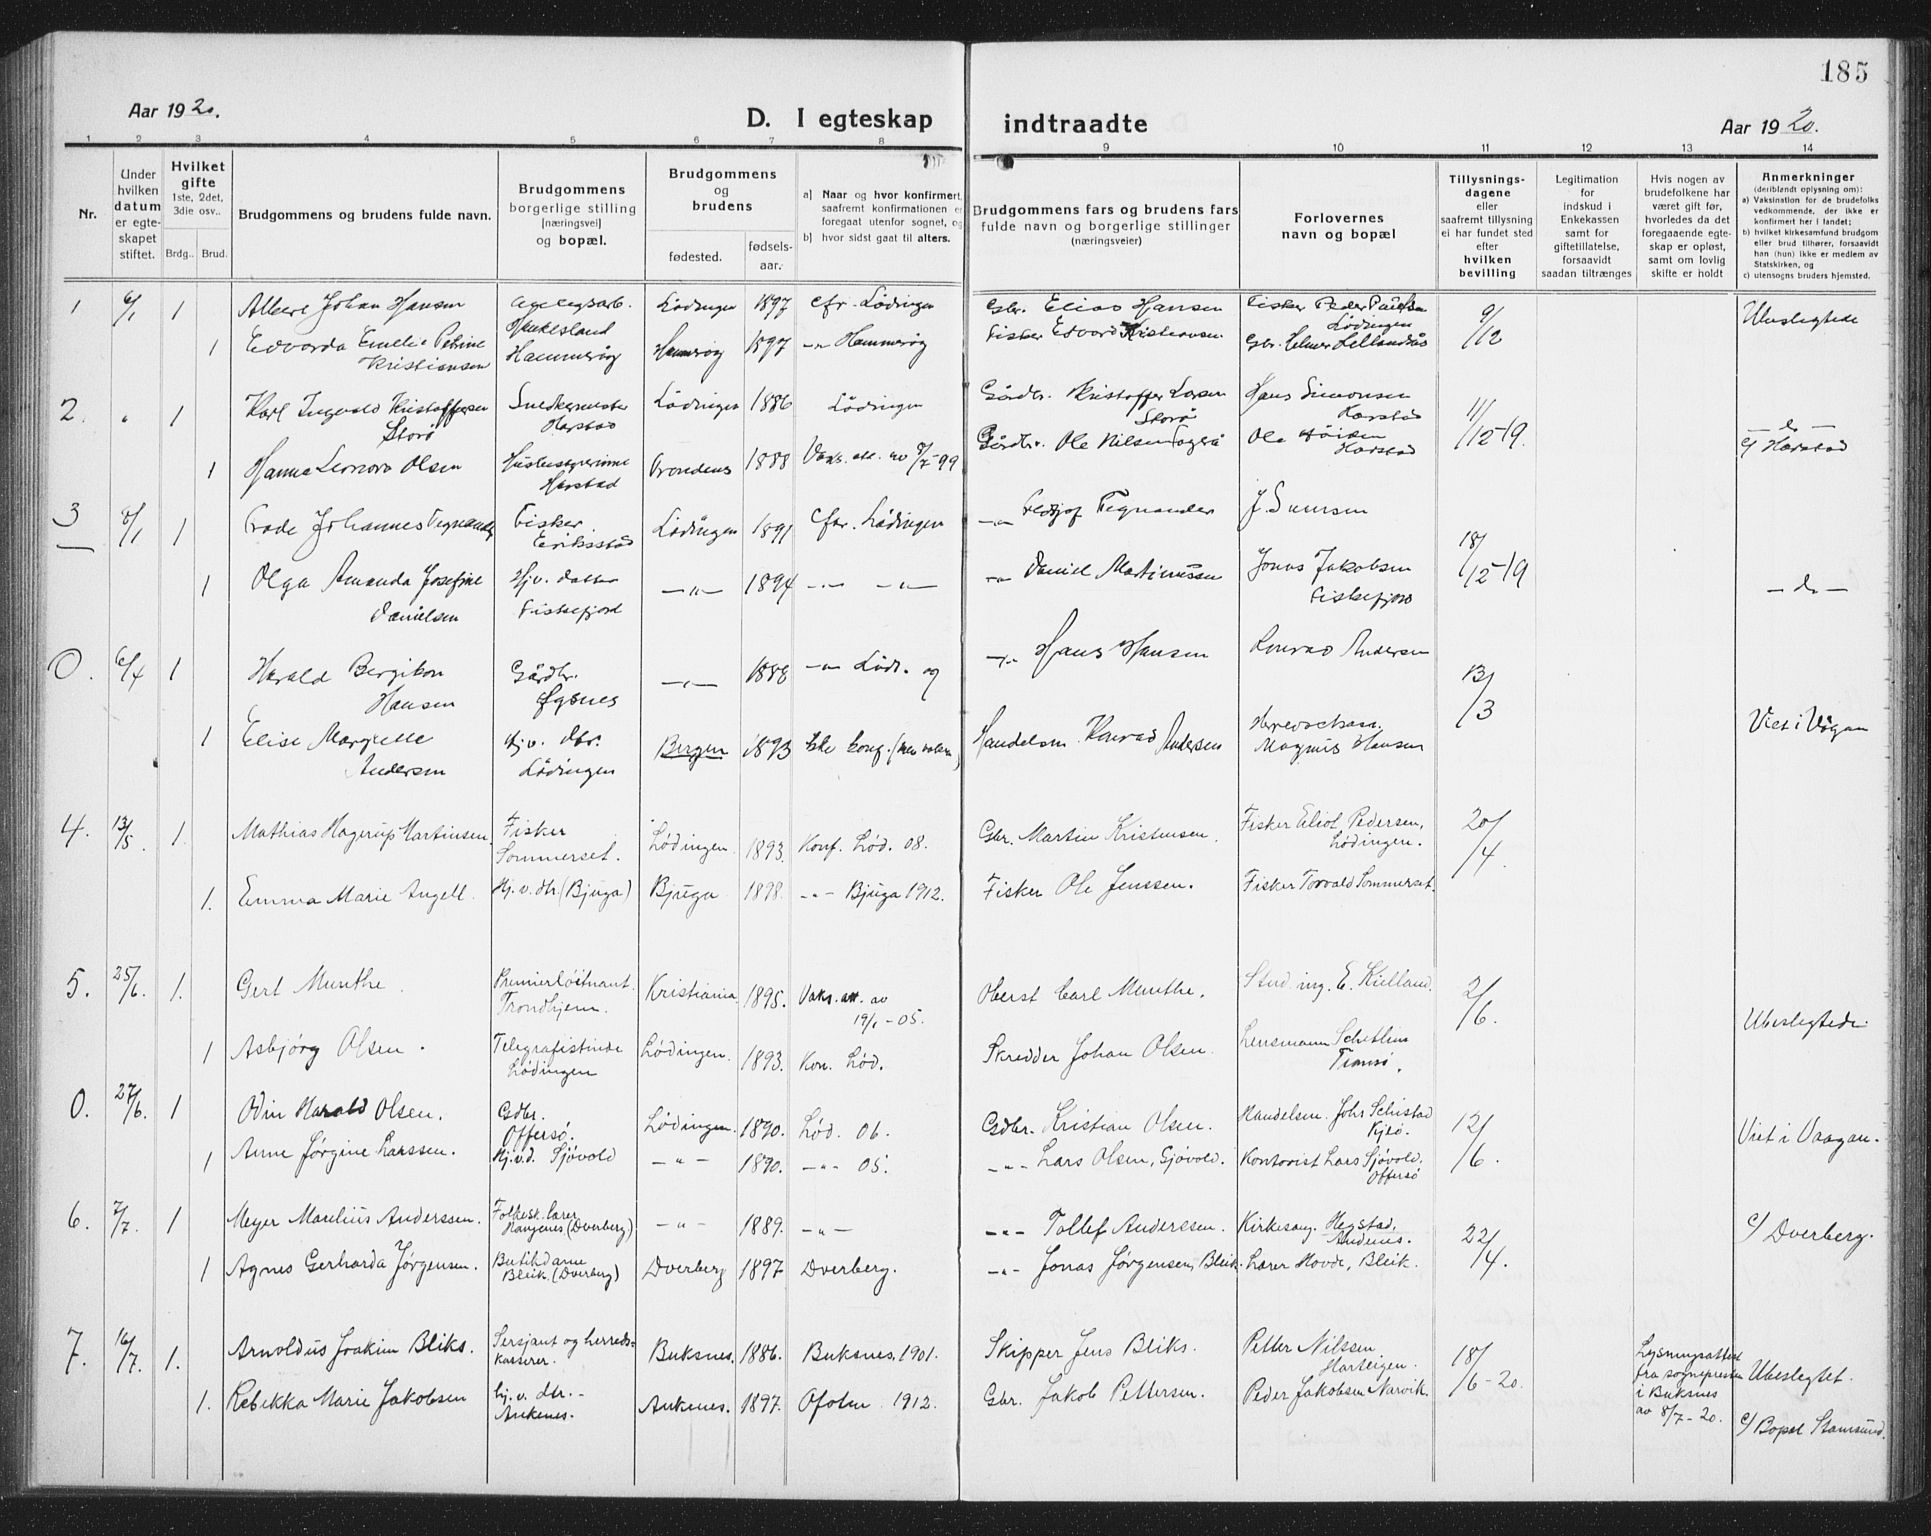 185
Aar 1920.
D. I egteskap indtraadte
Aar 1920.
1 2 3 4 5 6 7 8 9 10 11 12 13 14
Nr.
Under hvilken datum er egteskapet stiftet.
Hvilket gifte 1ste, 2det, 3die osv..
Brdg.. Brud.
Brudgommens og brudens fulde navn.
Brudgommens borgerlige stilling (næringsvei) og bopæl.
Brudgommens og brudens
fødested.
fødsels-aar.
a] Naar og hvor konfirmert, saafremt konfirmationen er foregaat utenfor sognet, og
b] hvor sidst gaat til alters.
Brudgommens fars og brudens fars fulde navn og borgerlige stillinger (næringsveier)
Forlovernes navn og bopæl
Tillysnings-dagene eller saafremt tillysning ei har fundet sted efter hvilken bevilling
Legitimation for indskud i Enkekassen samt for giftetillatelse, forsaavidt saadan tiltrænges
Hvis nogen av brudefolkene har været gift før, hvorledes da det foregaaende egteskap er opløst, samt om lovlig skifte er holdt
Anmerkninger (deriblandt oplysning om):
a) Vaksination for de brudefolks vedkommende, der ikke er konfirmert her i landet;
b) hvilket kirkesamfund brudgom eller brud tilhører, forsaavidt han (hun) ikke er medlem av Statskirken, og
c) utensogns bruders hjemsted.
1 6/1 1 Albert Johan Hansen Lødingen 1897 cfr. Lødingen Gbr. Elias Hansen Fisker Peder Lødingen 9/12 Ubeslegtede
1 Edvarda Emelie Petrine Kristiansen Hammerøy Hamerøy 1897 -"- Hammerøy Fisker Edvard Kristiansen Gbr.
2. " 1 Karl Ingvald Kristoffersen Storø Snedkermester Harstad Lødingen 1886 Lødingen Gårdbr. Kristoffer Larsen Storø Hans Simonsen Harstad 11/12-19. - d -
1 Hanna Leonora Olsen Harstad Trondenes 1888 Vaks. att. av 99 Gårdbr. Ole Nilsen Ole Harstad c/ Harstad
3 8/1 1 Johannes Tegnander Fisker Eriksstad Lødingen 1891 Cfr. Lødingen -"- Tegnander J. 18/12-19
1 Olga Amanda Josefine Danielsen Hjv. datter Fiskefjord -"- 1894 -"- -"- -"- Daniel Martinussen Jonas Jakobsen Fiskefjord - d -
0. 6/4 1 Harald Bergiton Hansen Gårdbr. Øgsnes -"- 1888 -"- Lød. og -"- Hans Hansen Konrad Andersen 13/3
1 Elise Margrethe Andersen Hjv. dtr. Lødingen Bergen 1893 Ikke konf. Handelsm. Konrad Andersen Magnus Hansen Viet i Vågan
4. 13/5. 1. Mathias Hagerup Martinsen. Fisker Sommerset. Lødingen. 1893. Konf. Lød. 08. Gbr. Martin Kristensen. Fisker Eliot Pedersen, Lødingen. 20/4.
1. Emma Marie Angell. Hj. v. dtr. (Bjuga) Bjuga 1898. -"- Bjuga 1912. Fisker Ole Jenssen. Fisker Torvald Sommerset.
5. 25/6. 1. Gert Munthe. Premierløitnant. Trondhjem. Kristiania 1895. Vaks. att. av 19/1 - 05. Oberst Carl Munthe. Stud. ing. E. Kielland. 2/6.
1 Asbjørg Olsen. Telegrafistinde Lødingen Lødingen. 1893. Kon. Lød. Skredder Johan Olsen. Lensmann Schetlins Tromsø. Ubeslegtede.
0. 27/6. 1 Odin Harald Olsen. Gdbr. Offersø. Lødingen. 1890. Lød. 06. Gdbr. Kristian Olsen. Handelsm. Joh. Schistad Kjeø. 12/6. Viet i Vaagan.
1 Anne Jørgine Larssen. Hj. v. d. Sjøvold -"- 1890. -"- 05. -"- Lars Olsen, Sjøvold. Kontorist Lars Sjøvold. Offersø
6. 7/7. 1 Meyer Marelius Anderssen. Folkesk. lærer Haugnes (Dverberg) -"- 1889. -"- -"- Tollef Anderssen. Kirkesang. Hegstad, Andenes. 22/4. c/ Dverberg.
1 Agnes Gerharda Jørgensen. Butikdame Bleik. (Dverberg) Dverberg 1897 Dverberg. -"- Jonas Jørgensen, Bleik. Lærer Hovde, Bleik.
7. 16/7. 1. Arnoldus Joakim Bliks. Sersjant og herreds-kasserer. Buksnes. 1886. Buksnes. 1901. Skipper Jens Bliks. Petter Nilssen Harteigen. 18/6-20. Lysningsattest fra sognepresten i Buksnes av 8/7-20. Ubeslegtet.
1. Rebekka Marie Jakobsen hj. v. dtr. - Ankenes. Ankenes. 1897. Ofoten 1912. Gbr. Jakob Pettersen. Peder Jakobsen Narvik. c/ Bopæl Stamsund.